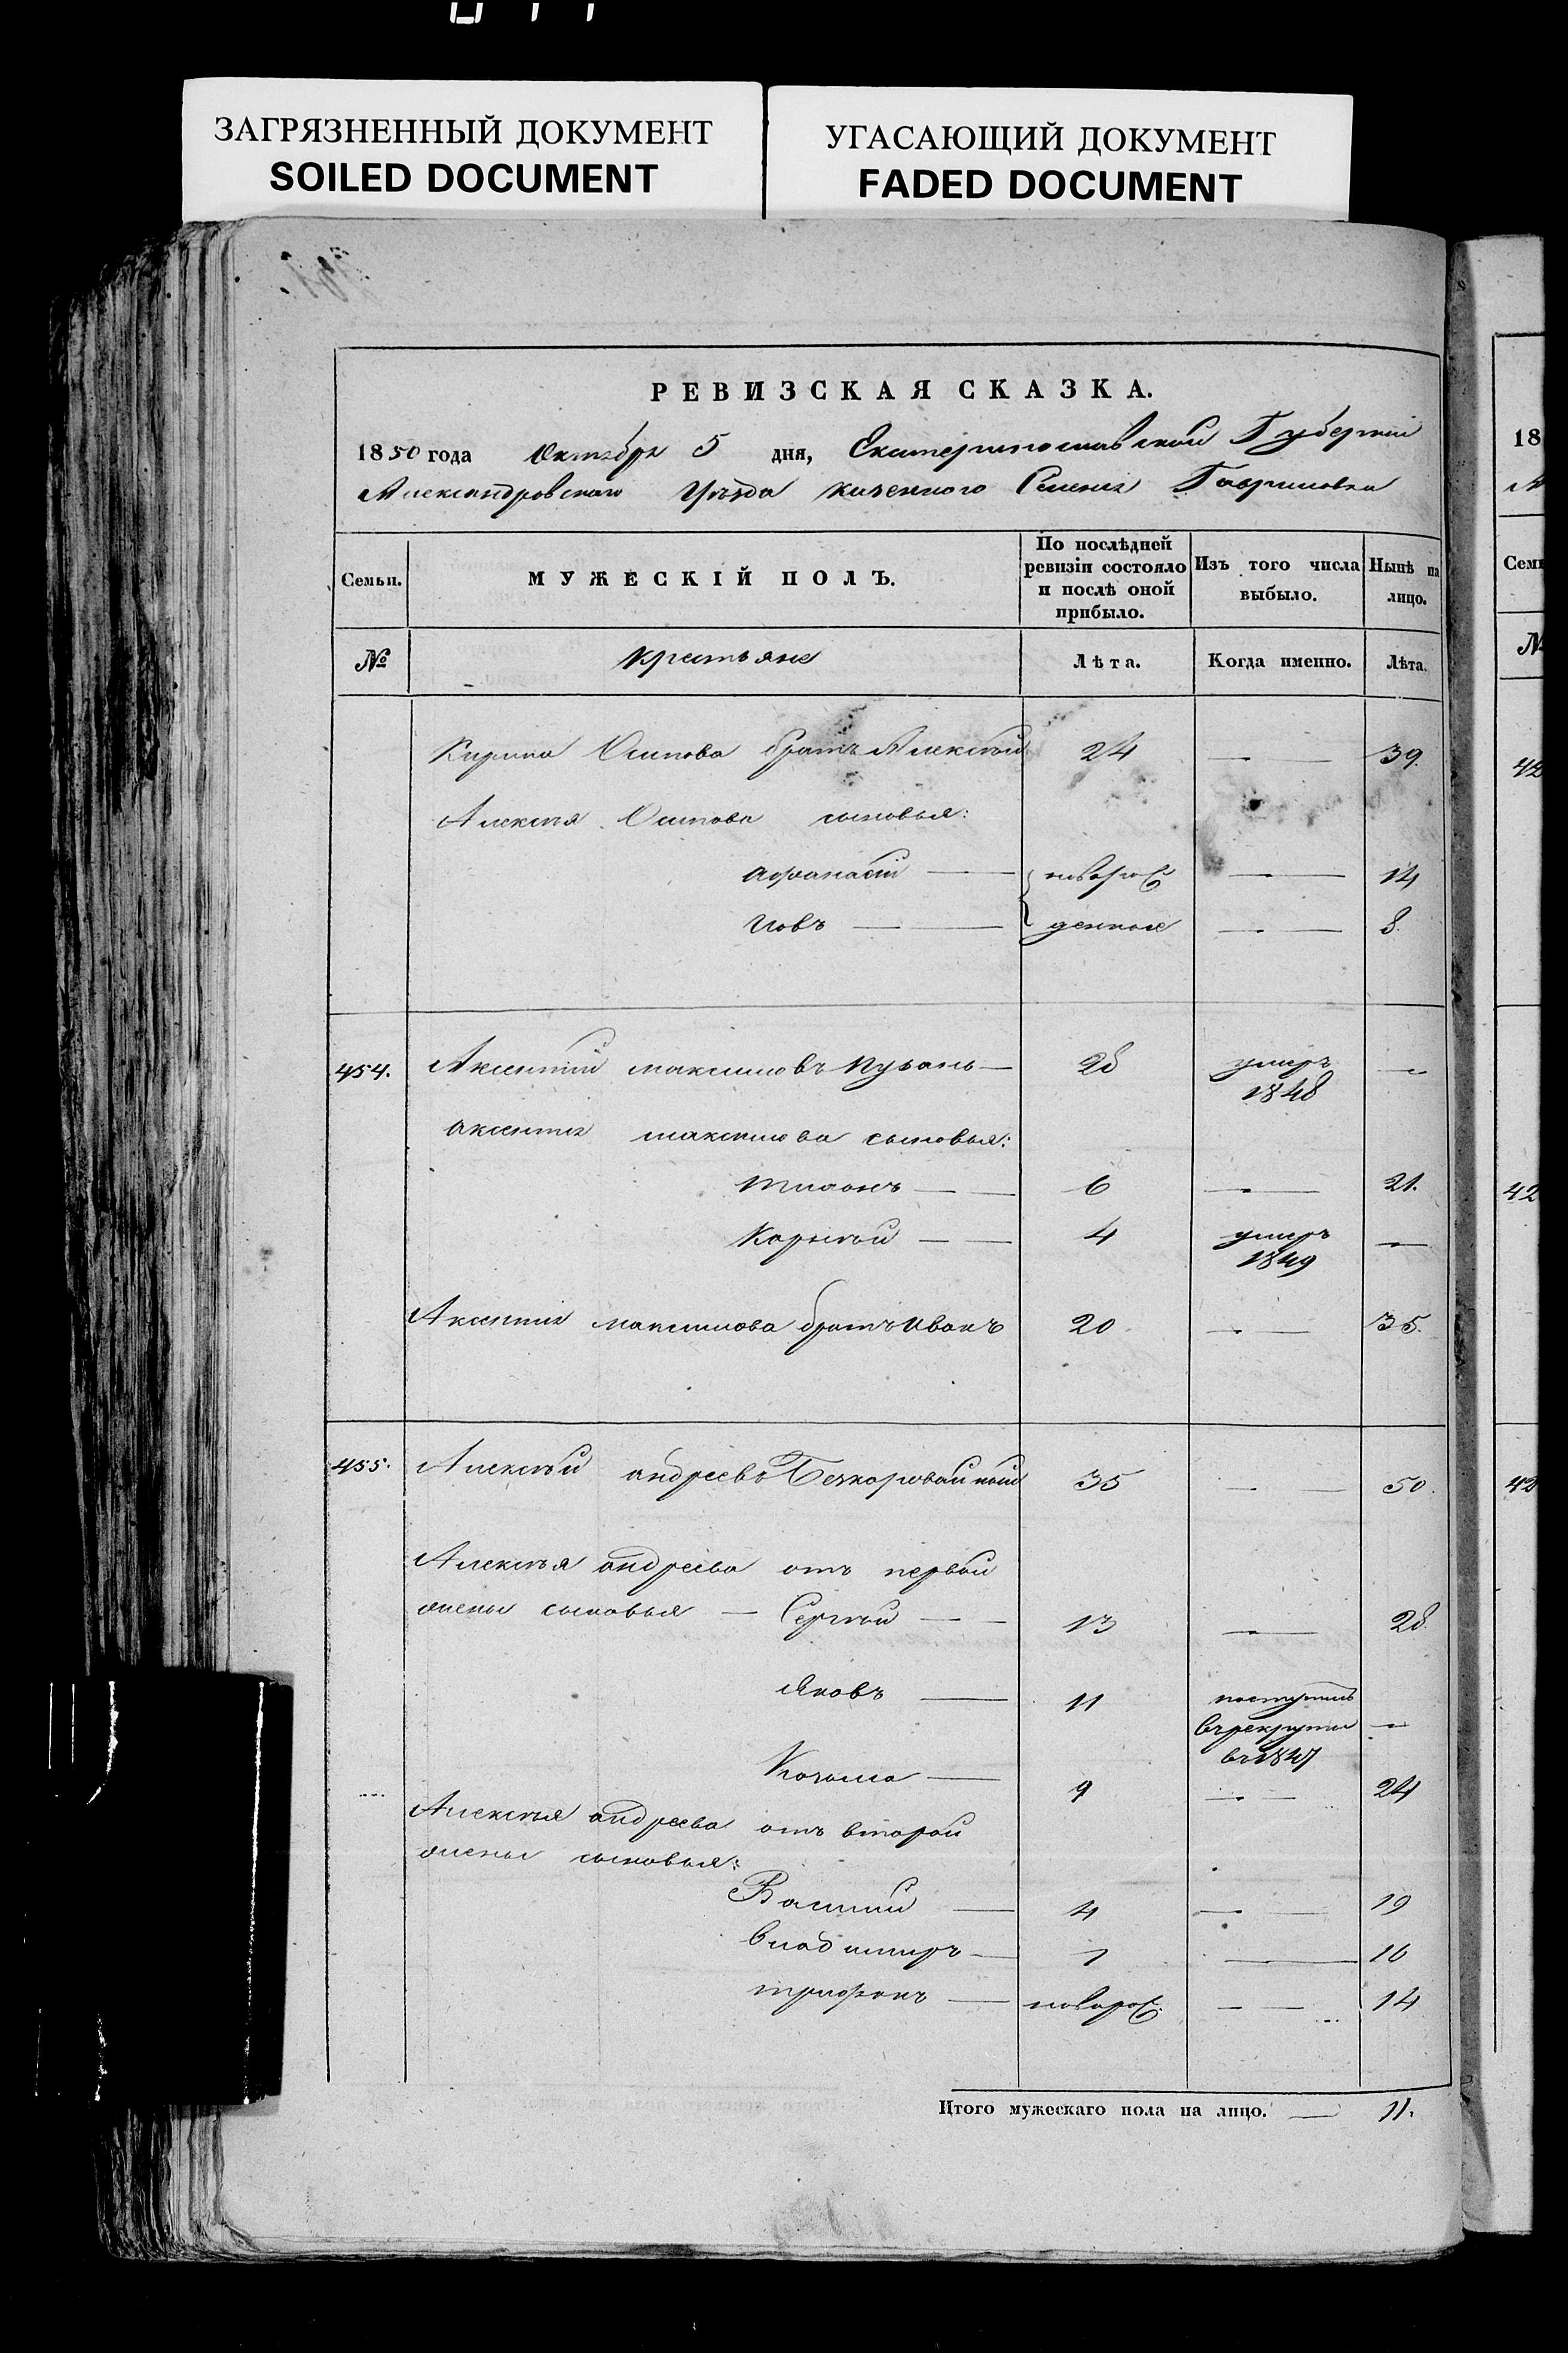 ЗАГРЯЗНЕННЫЙ ДОКУМЕНТ
SOILED DOCUMENT
УГАСАЮЩИЙ ДОКУМЕНТ
FADED DOCUMENT
РЕВИЗСКАЯ СКАЗКА.
1850 года Октября 5 дня, Екатеринославской Губернии
Александровского Уѣзда казенного Селения Гавриловки
Семьи. МУЖЕСКІЙ ПОЛЪ. По послѣдней ревизіи состояло и послѣ оной прибыло. Изъ того числа выбыло. Нынѣ на лицо.
№ Крестьяне Лѣта. Когда именно. Лѣта.
Кирила Осипова братъ Алексѣй 24 — 39.
Алексѣя Осипова сыновья:
Афанасій — новорож 14
Иовъ — денные — 8.
454. Аксентий Максимовъ 28 умеръ 1848 —
Аксентия Максимова сыновья:
6 — 21.
Корнѣй — 4 умеръ 1849 —
Аксентия Максимова братъ Иванъ 20 — 35.
455. Алексѣй Андреевъ Безкоровайный 35 — 50.
Алексѣя Андреева отъ первой
жены сыновья — Сергѣй — 13 — 28
Яковъ — 11 поступилъ
въ рекруты —
въ 1847
Козьма — 9 — 24
Алексѣя Андреева отъ второй
жены сыновья:
Василий — 4 — 19
Владимиръ — 1 — 16
Трифонъ — новорож. — 14
Итого мужескаго пола на лицо. — 11.
18
Семь
№
42
42
42